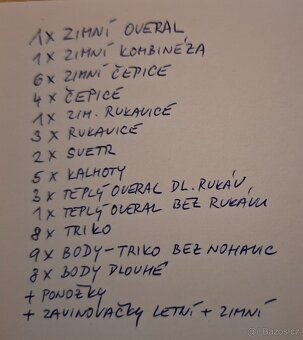 1x ZIMNÍ OVERAL
1x ZIMNÍ KOMBINÉZA
6x ZIMNÍ ČEPICE
4x ČEPICE
1x ZIM. RUKAVICE
3x RUKAVICE
2x SVETR
5x KALHOTY
3x TEPLÝ OVERAL DL. RUKÁV
1x TEPLÝ OVERAL BEZ RUKÁVU
8x TRIKO
9x BODY-TRIKO BEZ NOHAVIC
8x BODY DLOUHÉ
+ PONOŽKY
+ ZAVINOVAČKY LETNÍ + ZIMNÍ
Bazos.cz